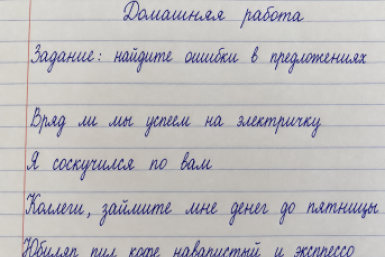 Домашняя работа
Задание: найдите ошибки в предложениях
Вряд ли мы успеем на электричку
Я соскучился по вам
Коллеги, займите мне денег до пятницы
Юбиляр пил кофе наваристый и экспрессо